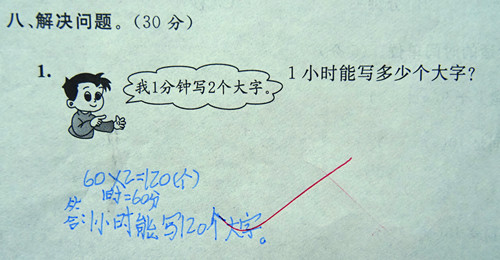 八、解决问题。(30分)
1. 我1分钟写2个大字。 1小时能写多少个大字?
60×2=120(个)
1时=60分
答:1小时能写120个大字。